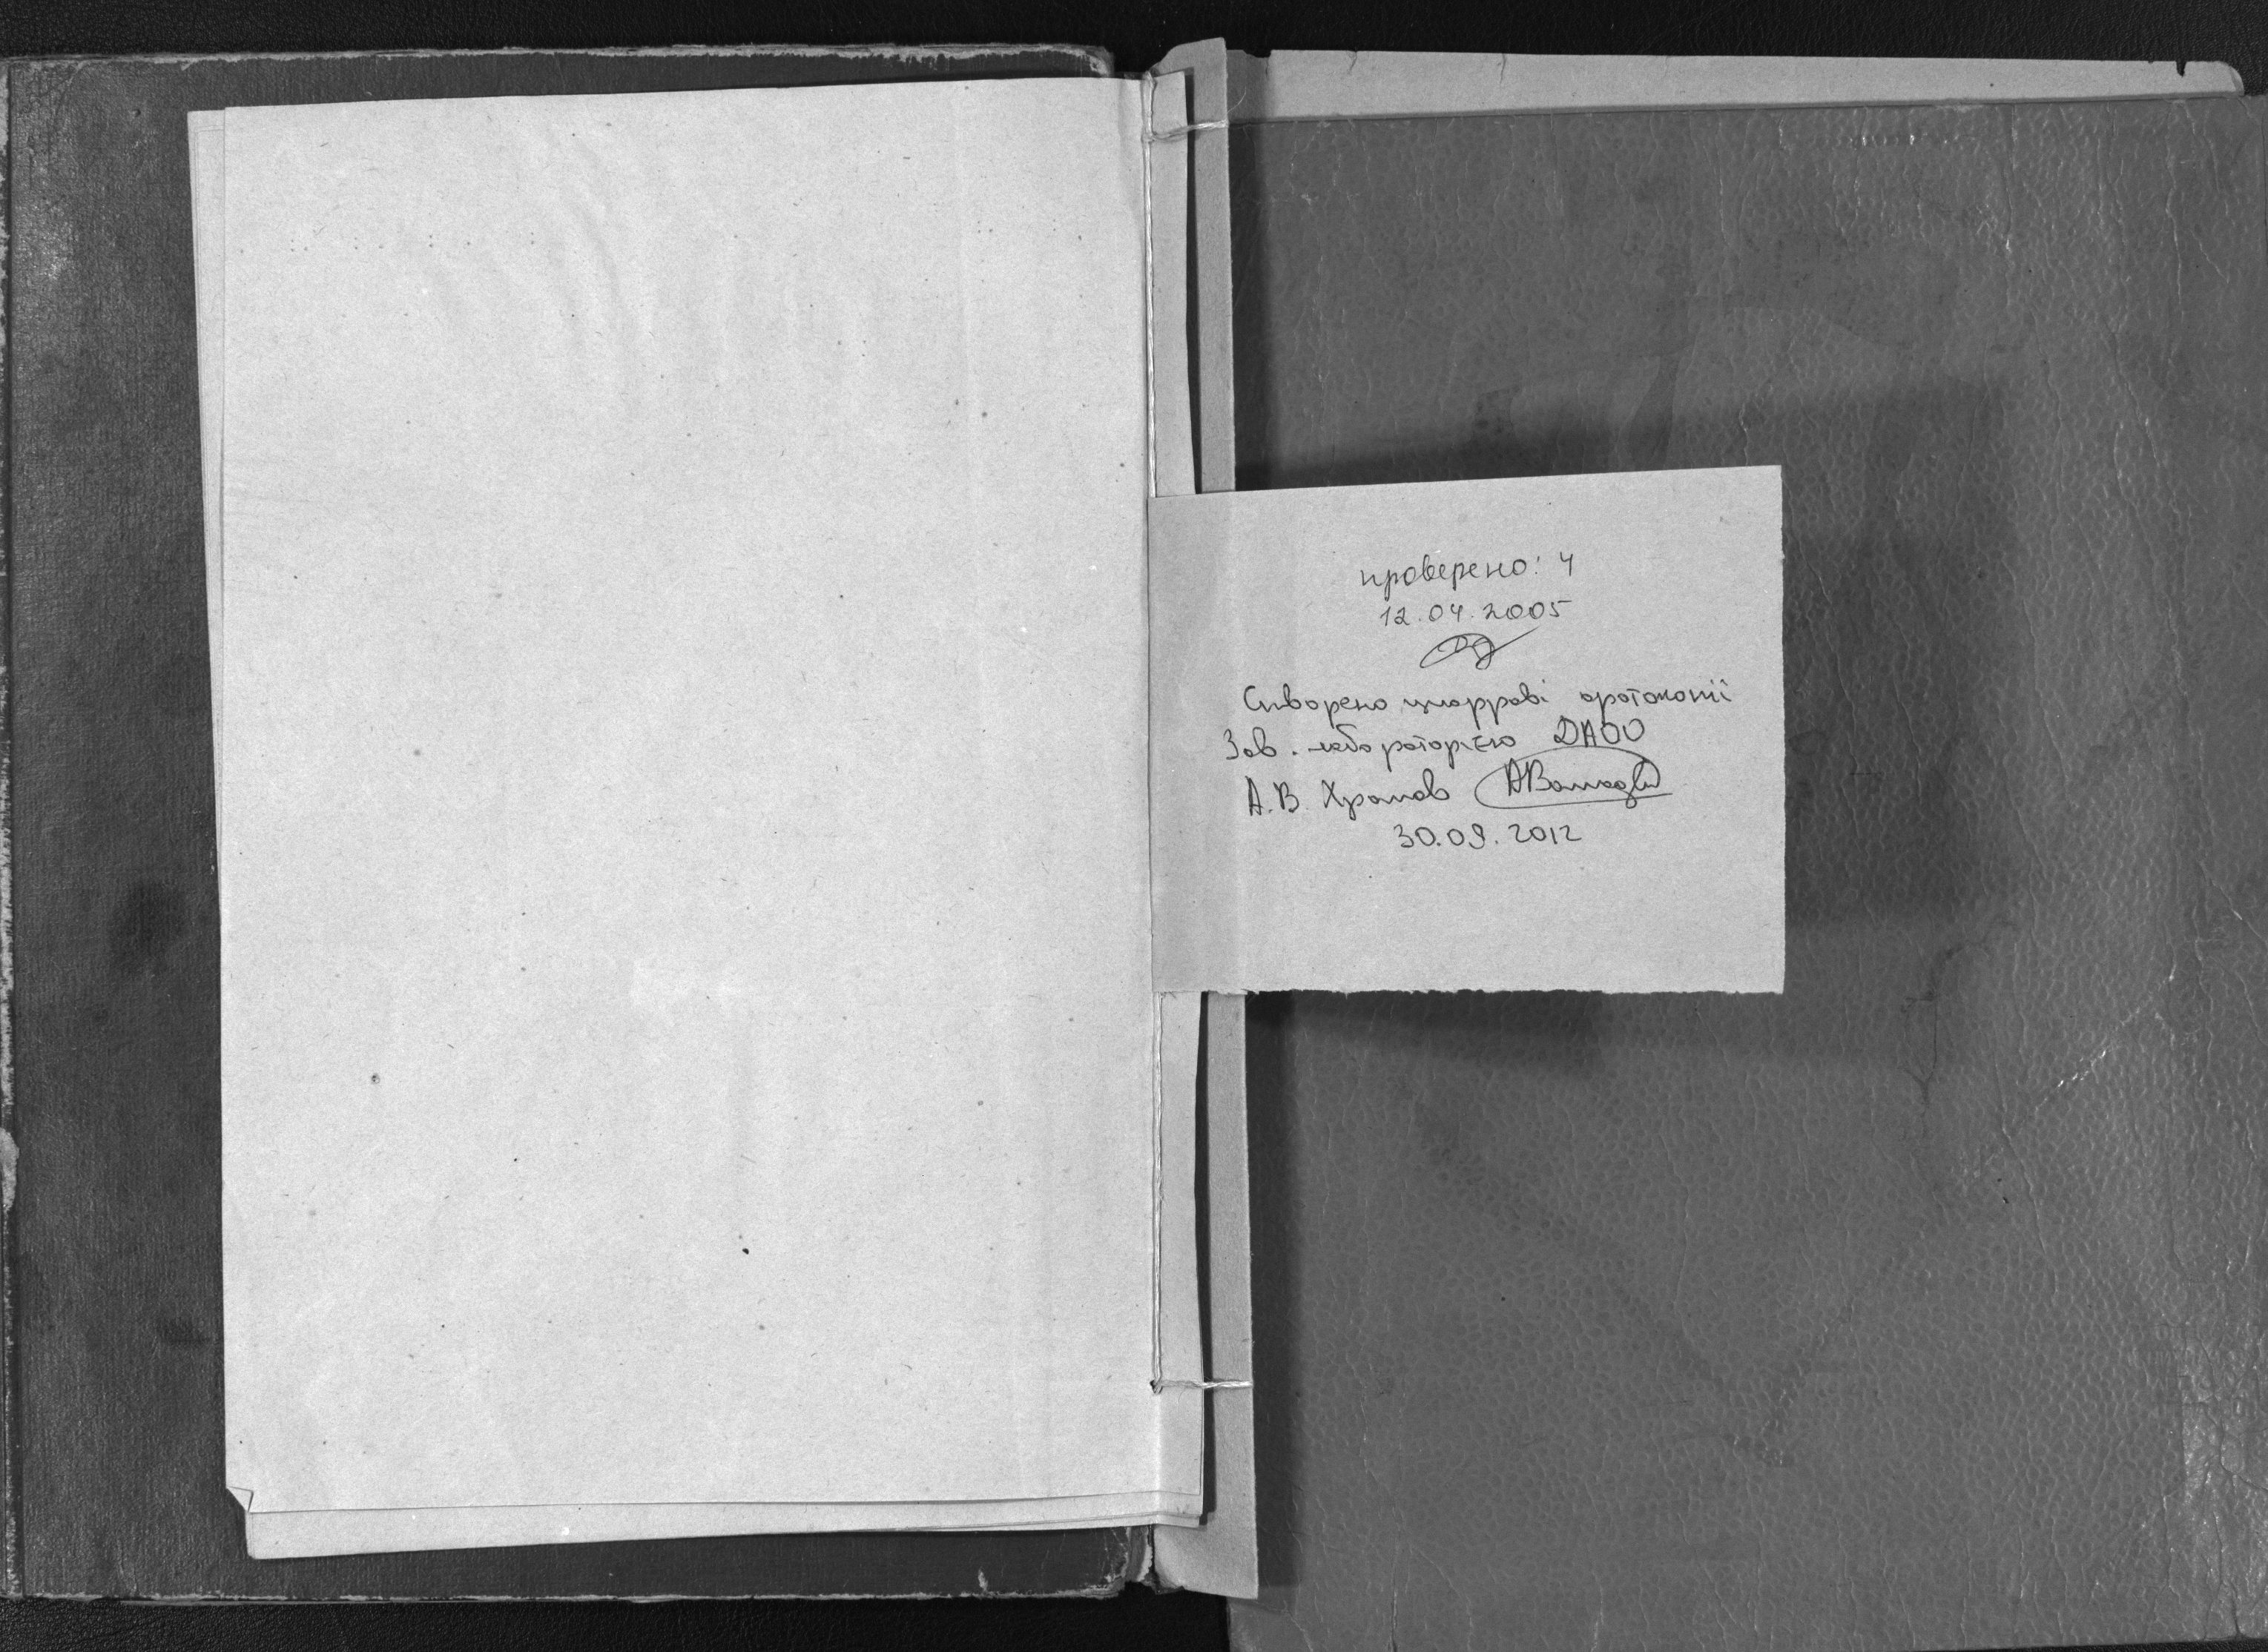 проверено: 4
12.04.2005
Створено цифрові фотокопії
Зав. лабораторією ДАОО
А.В. Храмов
30.09.2012